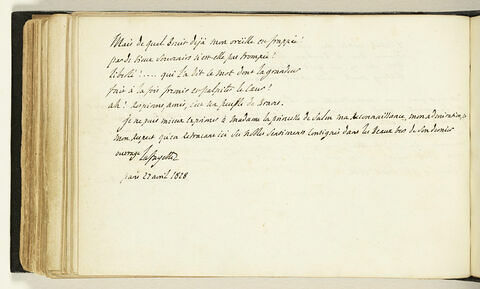 Mais de quel bruit déjà mon oreille est frappée!
par de vieux souvenirs n'est-elle pas trompée?
liberté!.... qui l'a dit ce mot dont la grandeur
fait à la fois frémir et palpiter le cœur!
ah! Respirons, amis, c'est un peuple de
je ne puis mieux exprimer à Madame la princesse de Salm ma reconnaissance, mon admiration,
mon respect qu'en retraçant ici ses nobles sentiments consignés dans les beaux vers de son dernier
ouvrage Lafayette
paris 27 avril 1828